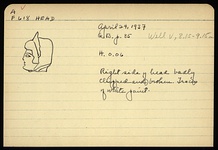 A
P 618 HEAD
April 29, 1937
W.B., p. 25 Well V, 8.10-9.15m
H. 0.06
Right side of head badly
chipped and broken. Traces
of white paint.